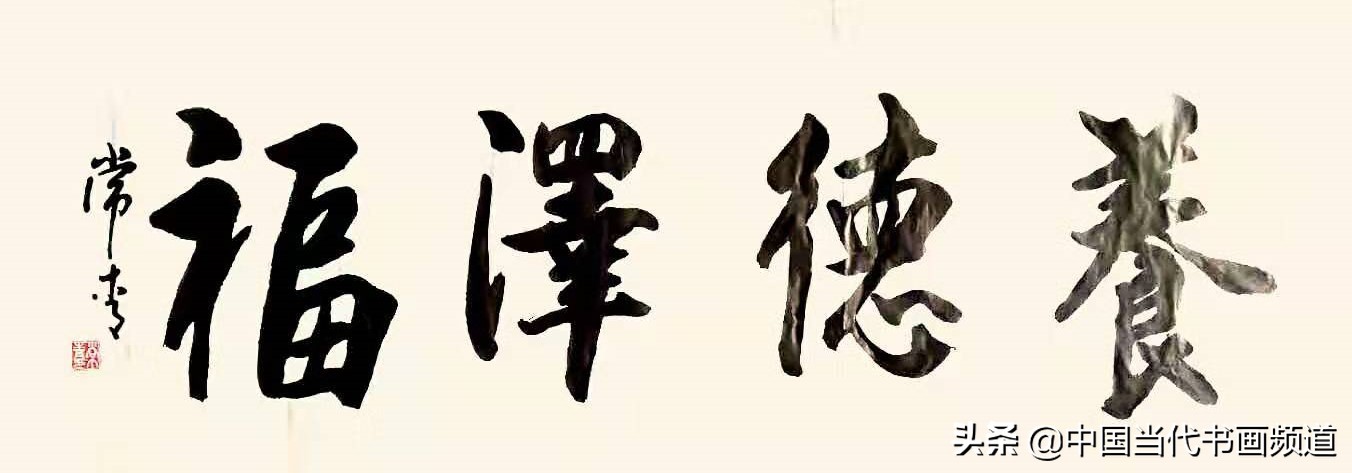 養德澤福
常青
头条 @中国当代书画频道